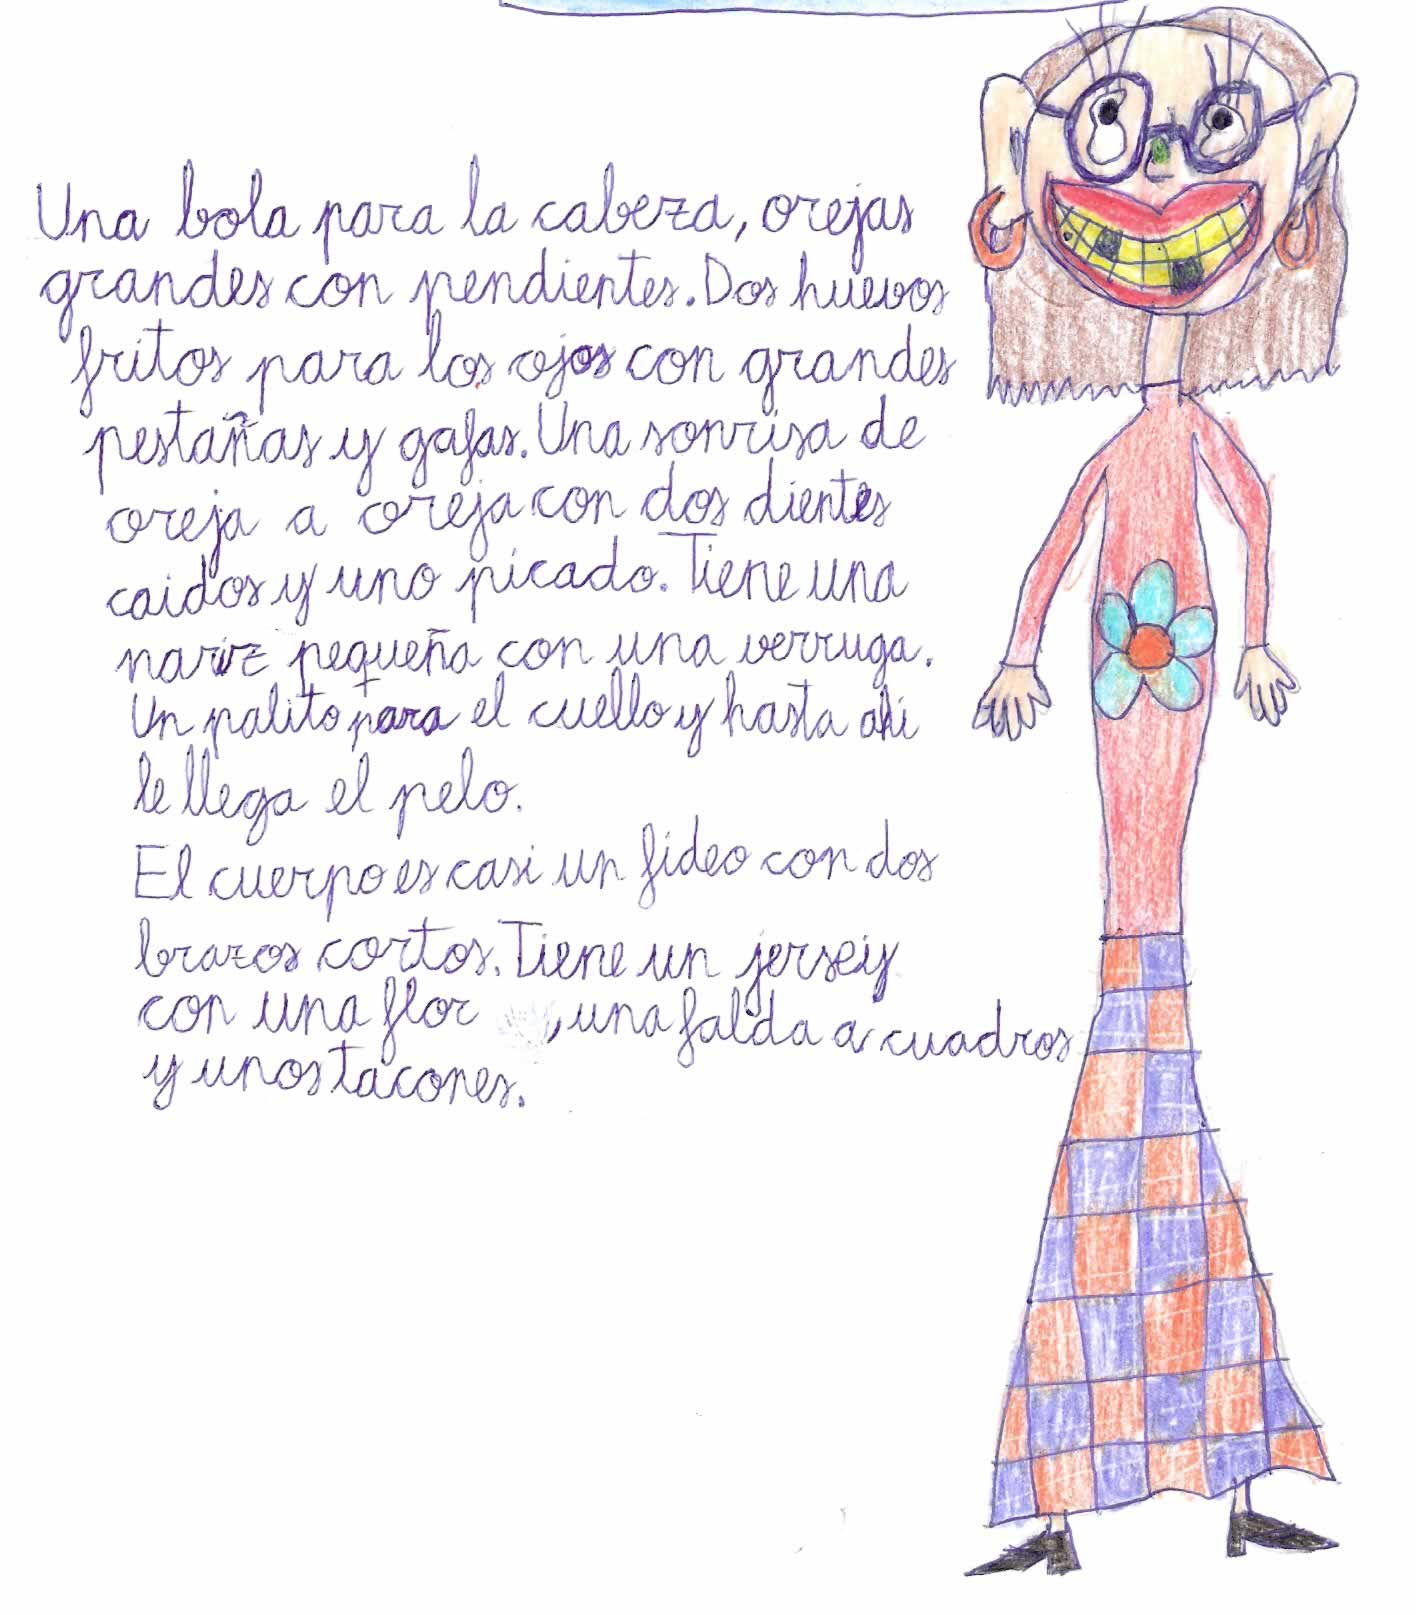 Una bola para la cabeza, orejas
grandes con pendientes. Dos huevos
fritos para los ojos con grandes
pestañas y gafas. Una sonrisa de
oreja a oreja con dos dientes
caidos y uno picado. Tiene una
nariz pequeña con una verruga.
Un palito para el cuello y hasta ahi
le llega el pelo.
El cuerpo es casi un fideo con dos
brazos cortos. Tiene un jersey
con una flor , una falda a cuadros
y unos tacones.